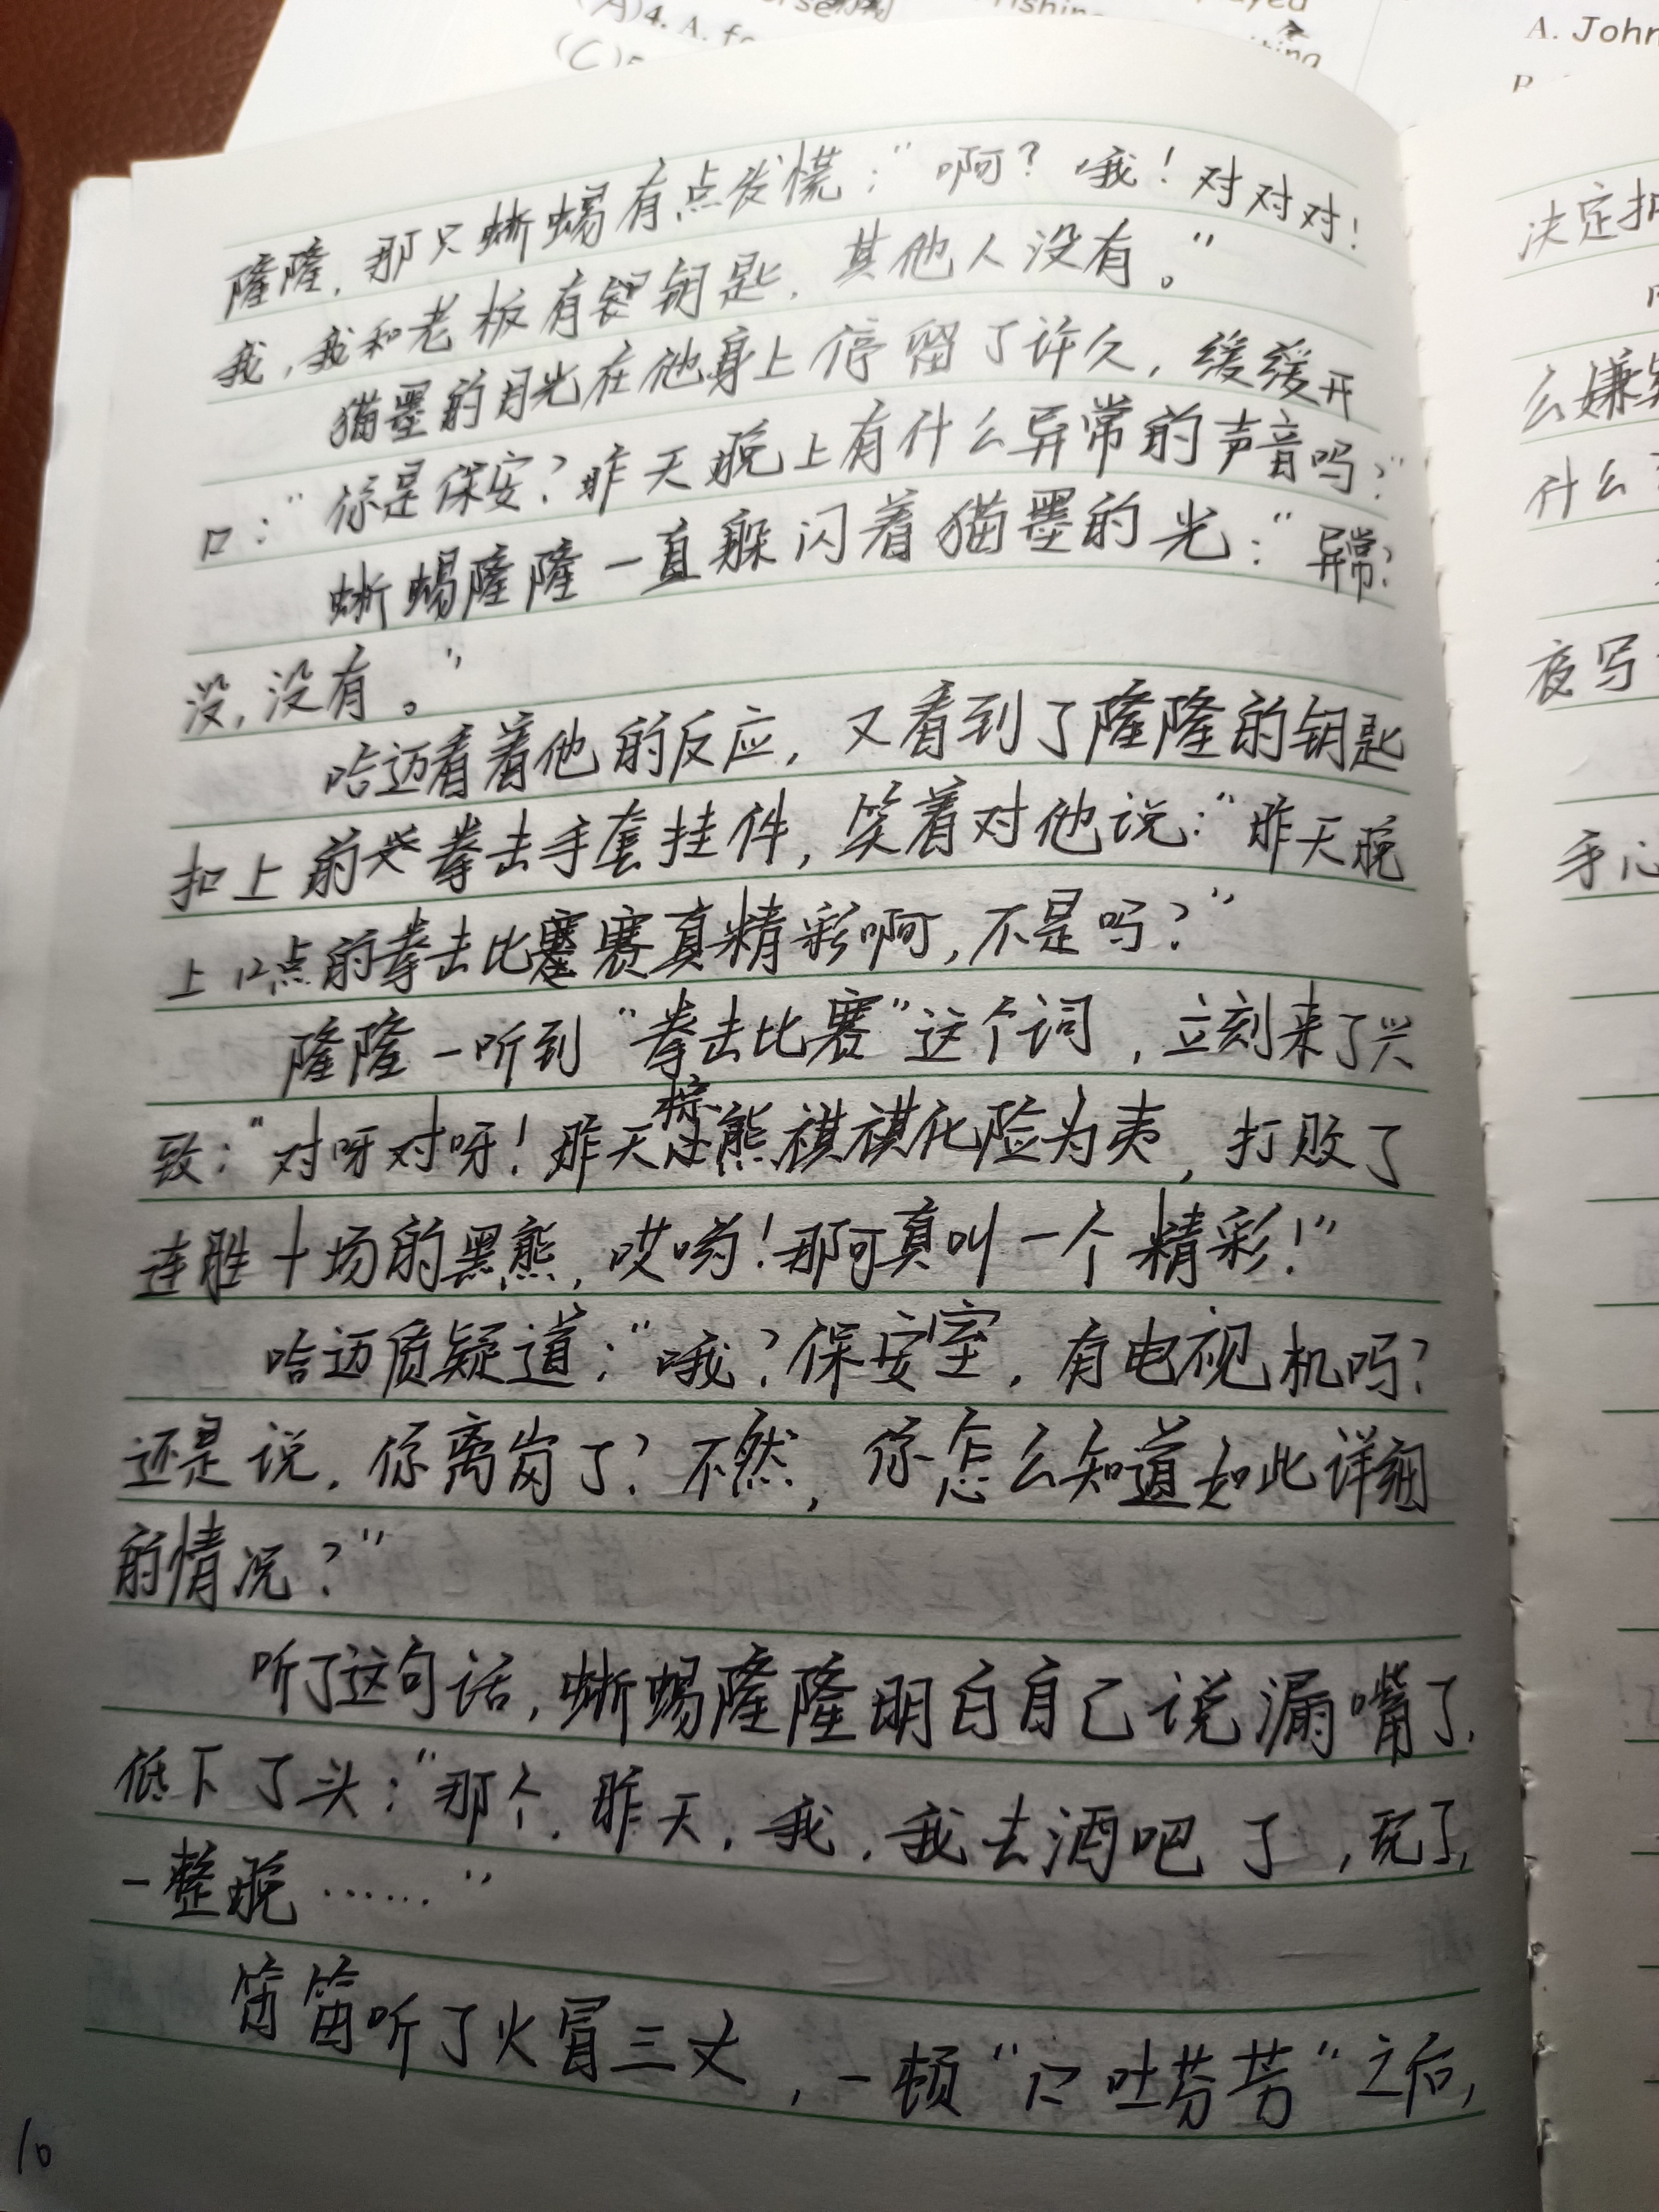 (A)4. A. fo
(C)
A. John
隆隆，那只蜥蜴有点发慌：“啊？哦！对对对！
我，我和老板有钥匙，其他人没有。”
猫墨的目光在他身上停留了许久，缓缓开
口：“你是保安？昨天晚上有什么异常的声音吗？”
蜥蜴隆隆一直躲闪着猫墨的光：“异常？
没，没有。”
哈迈看着他的反应，又看到了隆隆的钥匙
扣上的拳击手套挂件，笑着对他说：“昨天晚
上12点的拳击比赛真精彩啊，不是吗？”
隆隆一听到“拳击比赛”这个词，立刻来了兴
致：“对呀对呀！昨天棕熊祺祺化险为夷，打败了
连胜十场的黑熊，哎哟！那可真叫一个精彩！”
哈迈质疑道：“哦？保安室，有电视机吗？
还是说，你离岗了？不然，你怎么知道如此详细
的情况？”
听了这句话，蜥蜴隆隆明白自己说漏嘴了，
低下了头：“那个，昨天，我，我去酒吧了，玩了，
一整晚……”
笛笛听了火冒三丈，一顿“口吐芬芳”之后，
10
决定
么嫌
什么
夜写
手心